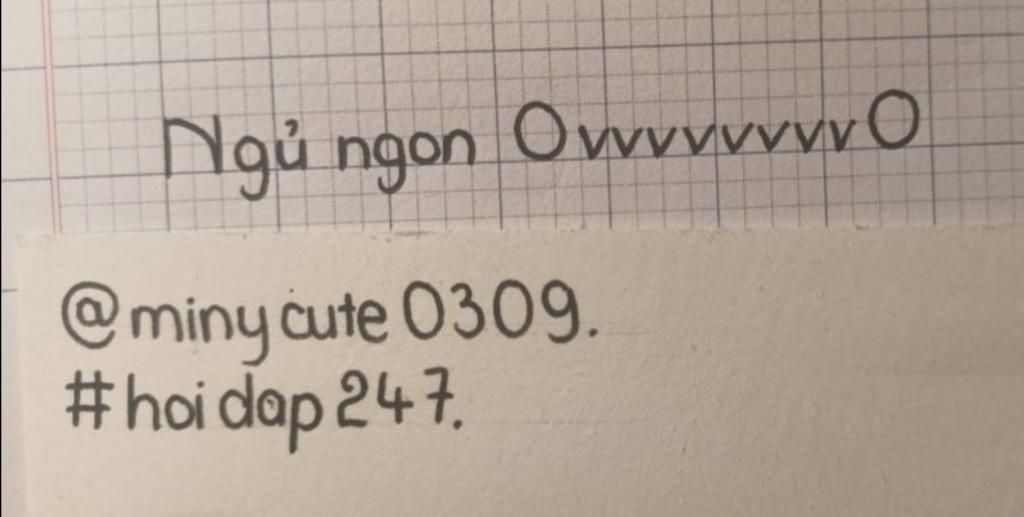 Ngủ ngon OvvvvvvvvO
@minycute0309.
#hoidap247.